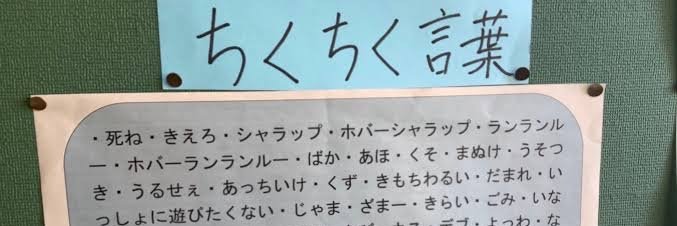 ちくちく言葉
・死ね・きえろ・シャラップ・ホバーシャラップ・ランランル
ー・ホバーランランルー・ばか・あほ・くそ・まぬけ・うそつ
き・うるせぇ・あっちいけ・くず・きもちわるい・だまれ・い
っしょに遊びたくない・じゃま・ざまー・きらい・ごみ・いな
デブ・よっわ・な